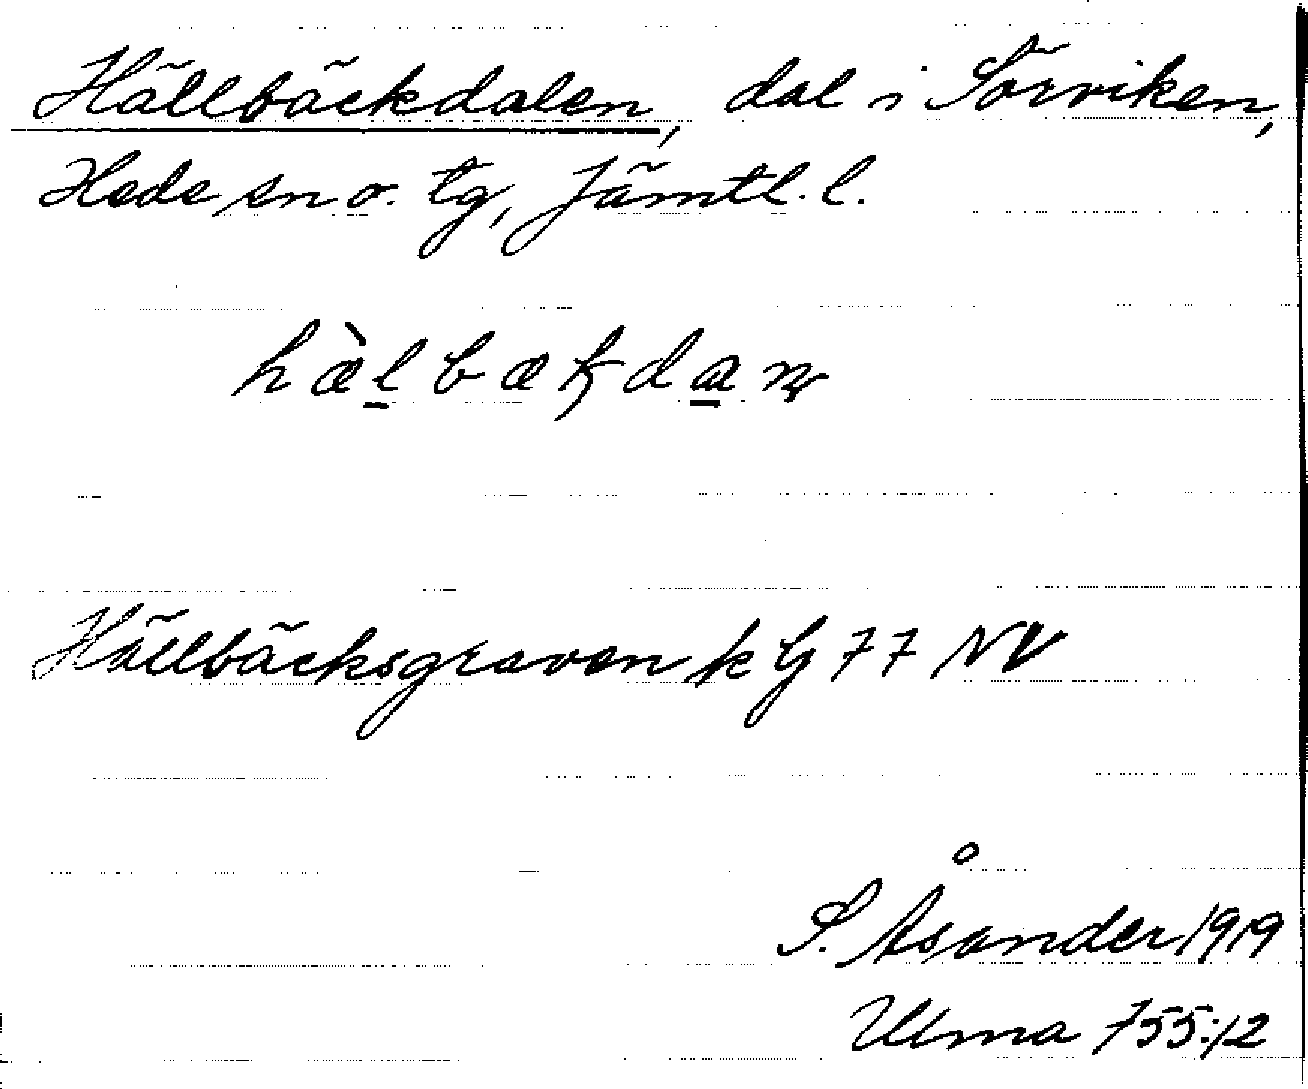 Hällbäckdalen, dal i Sörviken,
Hede sn o. tg, Jämtl. l.
hæ̀l̠bækda̠n
Hällbäcksgraven k G 77 NV
S. Åsander 1919
Ulma 755:12